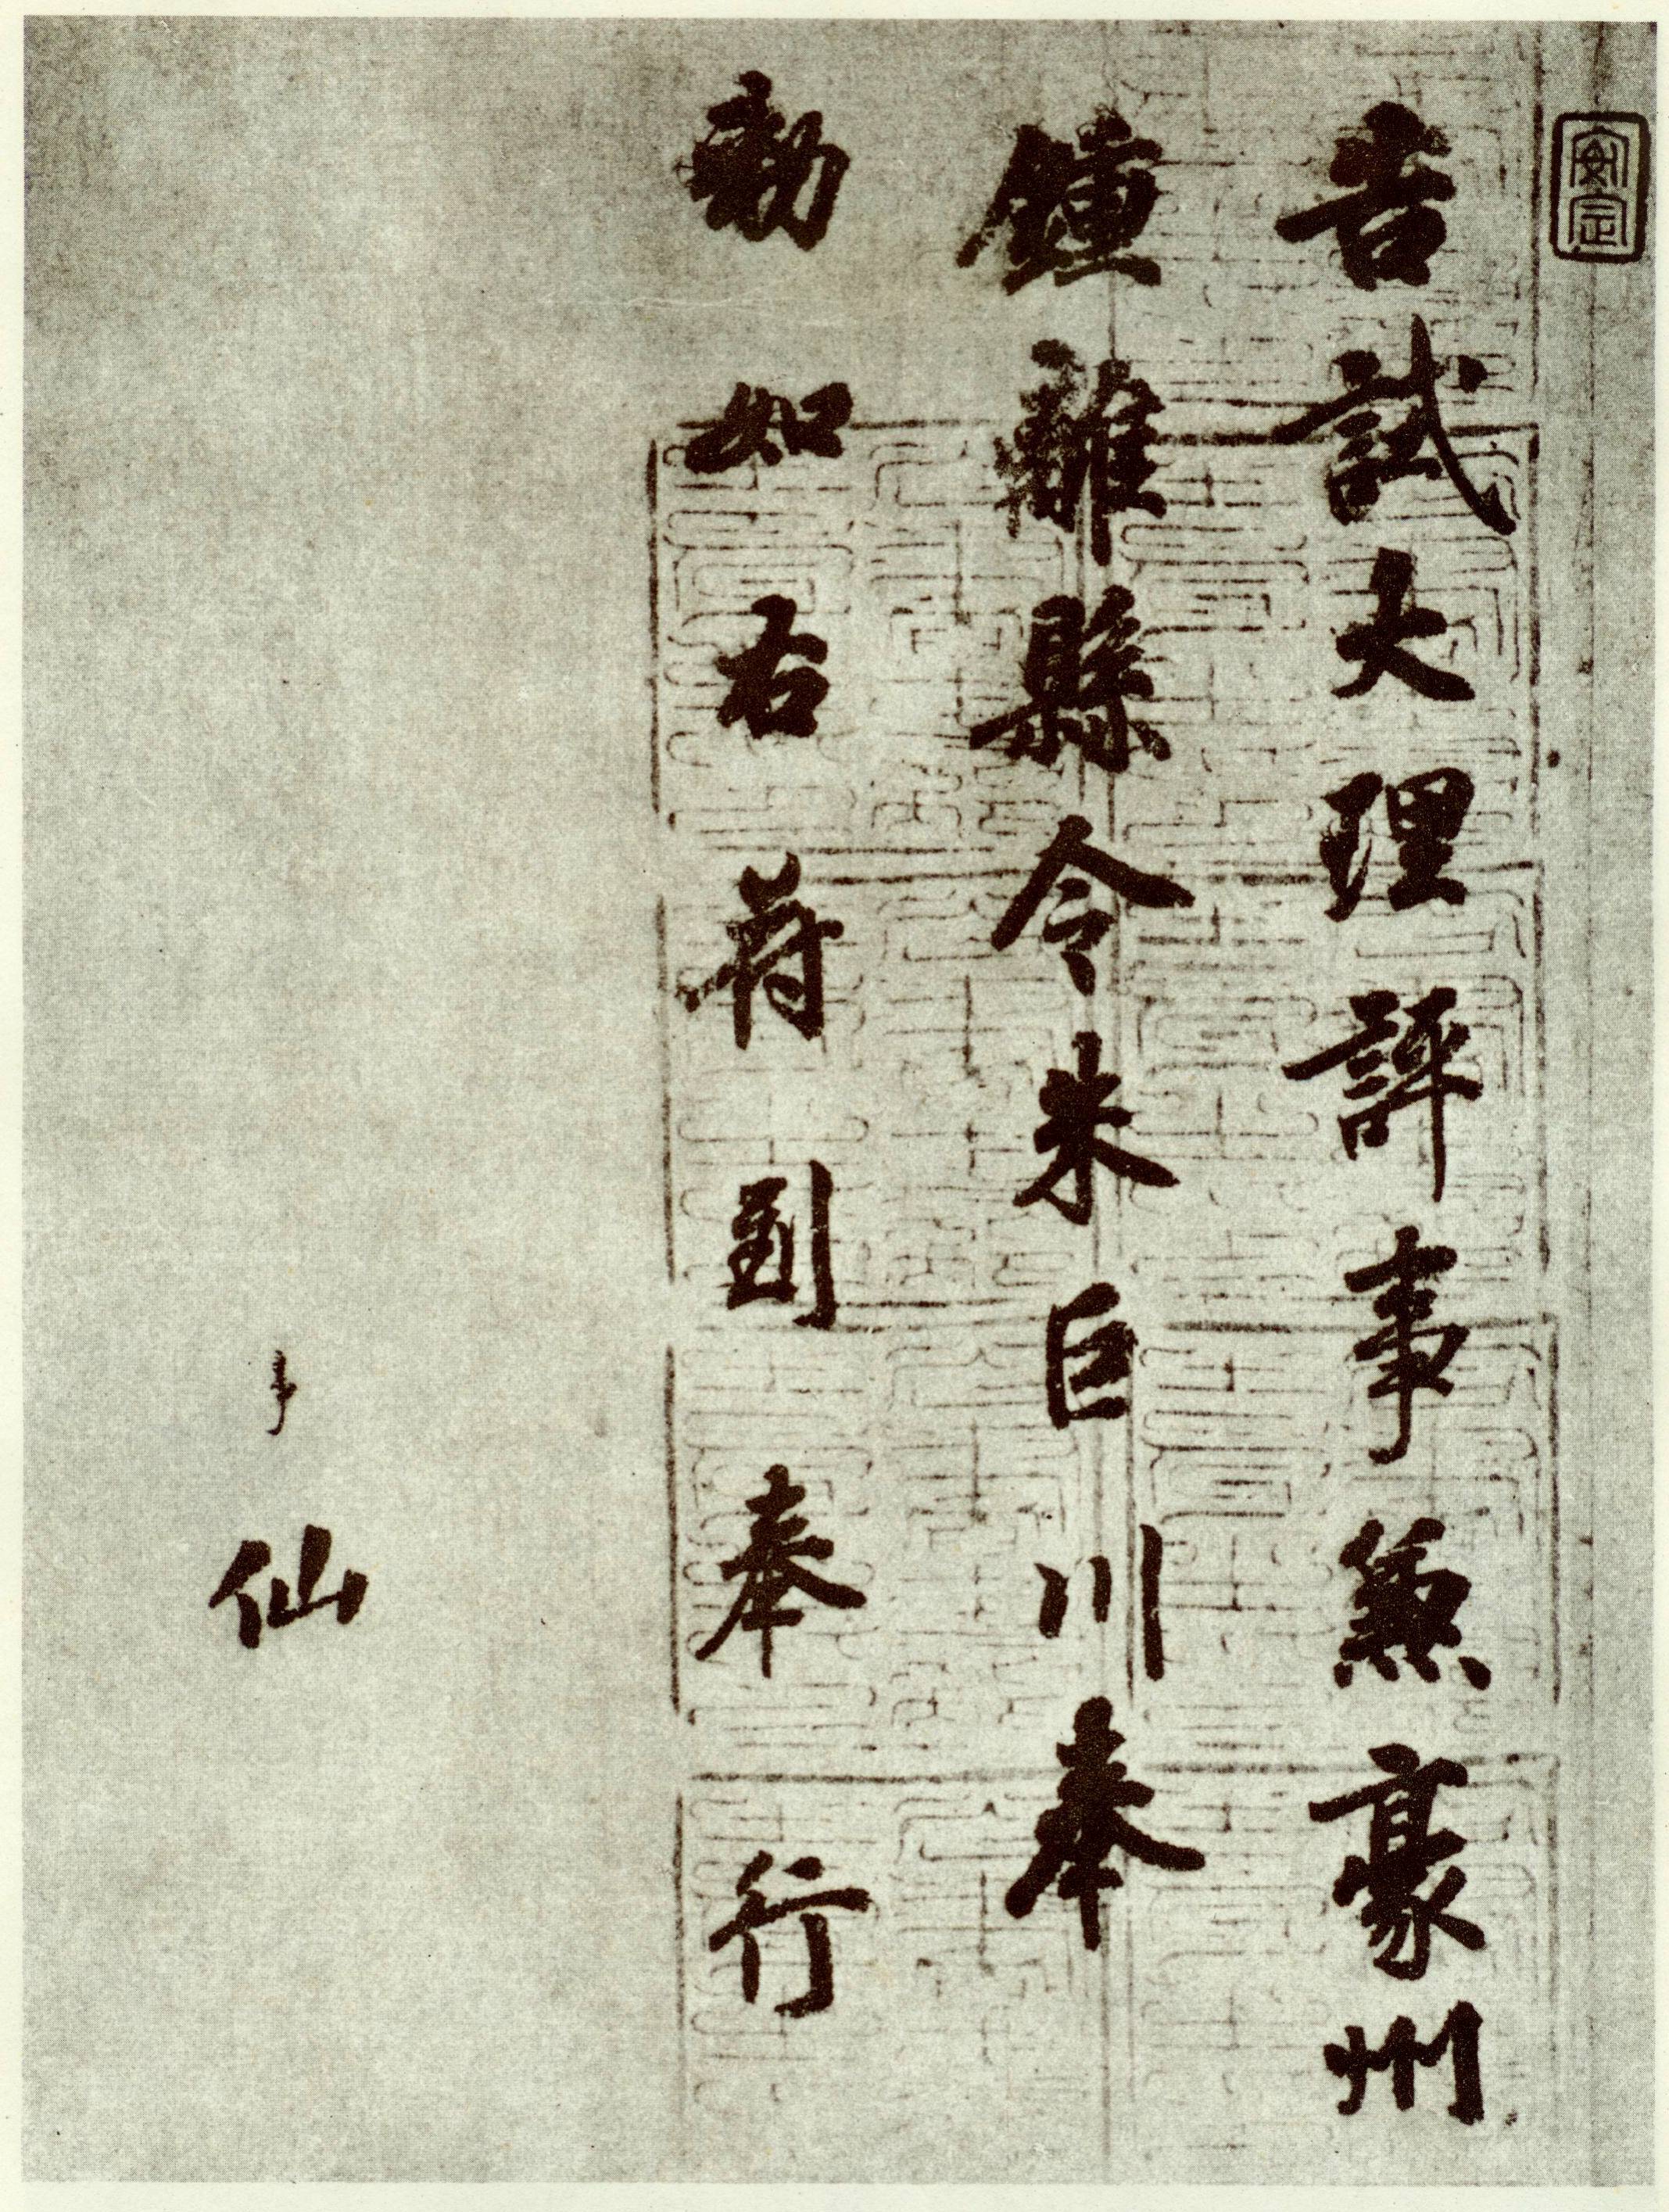 安定
告試大理評事兼豪州
鍾離縣令朱巨川奉
勅如右符到奉行
仙